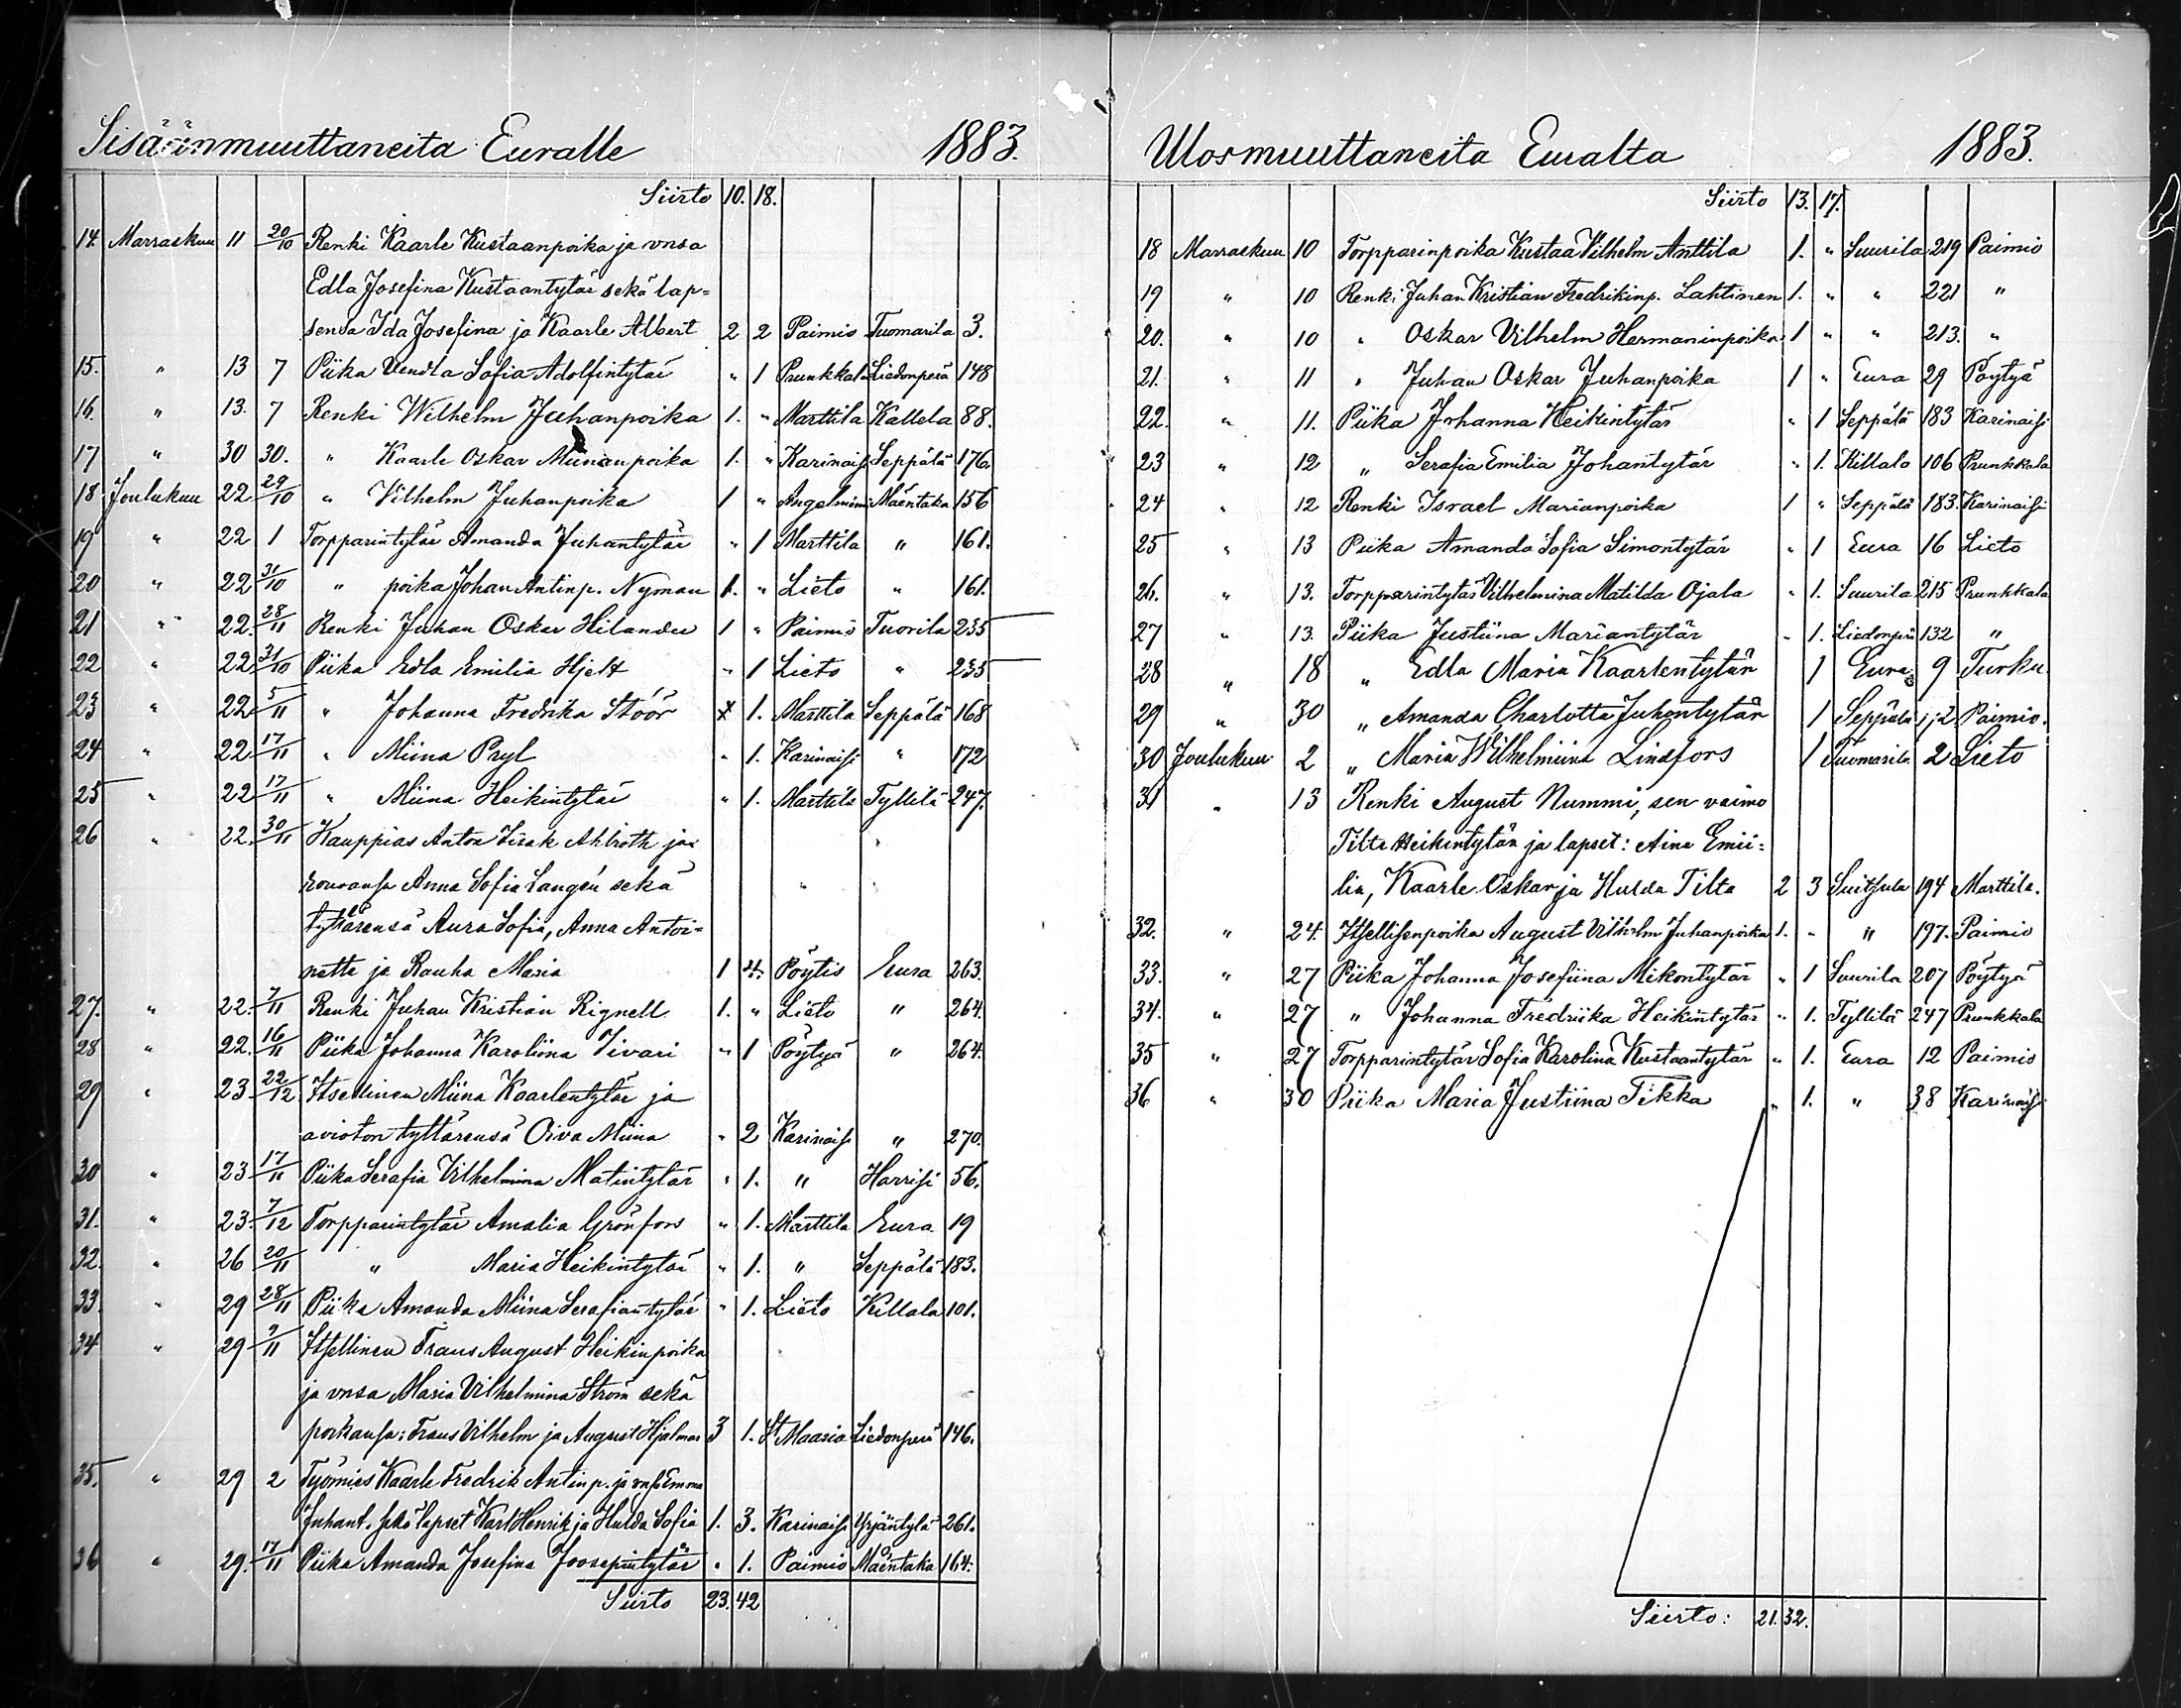 Sisäänmuuttaneita Euralle 1883.
Siirto 10. 18.
14. Marraskuu 11 20/10 Renki Kaarle Kustaanpoika ja vnsa
Edla Josefina Kustaantytär sekä lap=
sensa Ida Josefina ja Kaarle Albert 2 2 Paimio Tuomarila 3.
15. " 13 7 Piika Vendla Sofia Adolfintytär " 1 Prunkkala Liedonperä 148
16. " 13. 7 Renki Wilhelm Juhanpoika 1. " Marttila Kallela 88.
17 " 30 30. " Kaarle Oskar Miinanpoika 1. " Karinais Seppälä 176.
18 Joulukuu 22 29/10 " Vilhelm Juhanpoika 1 " Angelniemi Mäentaka 156
19 " 22 1 Torpparintytär Amanda Juhantytär " 1 Marttila " 161.
20 " 22 31/10 " poika Johan Antinp. Nyman 1. " Lieto " 161.
21 " 22. 28/11 Renki Juhan Oskar Hilander 1 " Paimio Tuorila 235
22 " 22 31/10 Piika Edla Emilia Hjelt " 1 Lieto " 235
23 " 22 5/11 " Johanna Fredrika Stöör 1. Marttila Seppälä 168
24 " 22 17/11 " Miina Pryl " 1. Karinaisi " 172
25 " 22 17/11 " Miina Heikintytär " 1. Marttila Tyllilä 247.
26 " 22. 30/11 Kauppias Anton Isak Ahlroth ja
rouvansa Anna Sofia Langén sekä
tyttärensä Aura Sofia, Anna Antoi=
nette ja Rauha Maria 1 4. Pöytis Eura 263.
27. " 22. 7/11 Renki Juhan Kristian Rignell 1. " Lieto " 264.
28 " 22. 16/11 Piika Johanna Karoliina Vivari " 1 Pöytyä " 264.
29 " 23 22/12 Itsellinen Miina Kaarlentytär ja
avioton tyttärensä Oiva Miina " 2 Karinais " 270.
30 " 23 17/11 Piika Serafia Vilhelmina Matintytär " 1. " Harrisi 56.
31. " 23. 7/12 Torpparintytär Amalia Grönfors " 1. Marttila Eura 19
32. " 26 20/11 " Maria Heikintytär " 1. " Seppälä 183.
33. " 29 28/11 Piika Amanda Miina Serafiantytär " 1. Lieto Killala 101.
34 " 29 9/11 Itsellinen Frans August Heikinpoika
ja vnsa Maria Vilhelmina Ström sekä
poikansa: Frans Vilhelm ja August Hjalmar 3 1. St Maaria Liedonperä 146.
35. " 29 2 Työmies Kaarle Fredrik Antinp. ja vnsa Emma
Juhant. sekä lapset Karl Henrik ja Hulda Sofia 1. 3. Karinais Yrjäntylä 261.
36 " 29. 17/11 Piika Amanda Josefina Joosepintytär " 1. Paimio Mäentaka 164.
Siirto 23. 42
Ulosmuuttaneita Euralta 1883.
Siirto 13. 17.
18 Marraskuu 10 Torpparinpoika Kustaa Vilhelm Anttila 1. " Suurila 219 Paimio
19 " 10 Renki Juhan Kristian Fredrikinp. Lahtinen 1. " " 221 "
20. " 10 " Oskar Vilhelm Hermaninpoika 1 " " 213. "
21. " 11 " Juhan Oskar Juhanpoika 1 " Eura 29 Pöytyä
22. " 11. Piika Johanna Heikintytär " 1 Seppälä 183 Karinaisi
23 " 12 " Serafia Emilia Johantytär " 1. Killala 106 Prunkkala
24 " 12 Renki Israel Marianpoika 1 " Seppälä 183. Karinaisi
25 " 13 Piika Amanda Sofia Simontytär " 1 Eura 16 Lieto
26. " 13. Torpparintytär Vilhelmina Matilda Ojala " 1. Suurila 215 Prunkkala
27 " 13. Piika Justiina Mariantytär " 1. Liedonperä 132 "
28 " 18 " Edla Maria Kaarlentytär 1 Eura 9 Turku
29 " 30 " Amanda Charlotta Juhontytär 1 Seppälä Paimio.
30 Joulukuu 2 " Maria Wilhelmiina Lindfors 1 Tuomarila 2 Lieto
31 " 13 Renki August Nummi, sen vaimo
Tilta Heikintytär ja lapset: Aina Emii=
lia, Kaarle Oskar ja Hulda Tilta 2 3 Suitsula 194 Marttila.
32. " 24. Itsellisenpoika August Vilhelm Juhanpoika 1. " " 197. Paimio
33. " 27 Piika Johanna Josefiina Mikontytär " 1 Suurila 207 Pöytyä
34. " 27 " Johanna Fredriika Heikintytär " 1. Tyllilä 247 Prunkkala
35 " 27 Torpparintytär Sofia Karolina Kustaantytär " 1. Eura 12 Paimio
36 " 30 Piika Maria Justiina Tikka " 1. " 38 Karinaisi
Siirto: 21. 32.